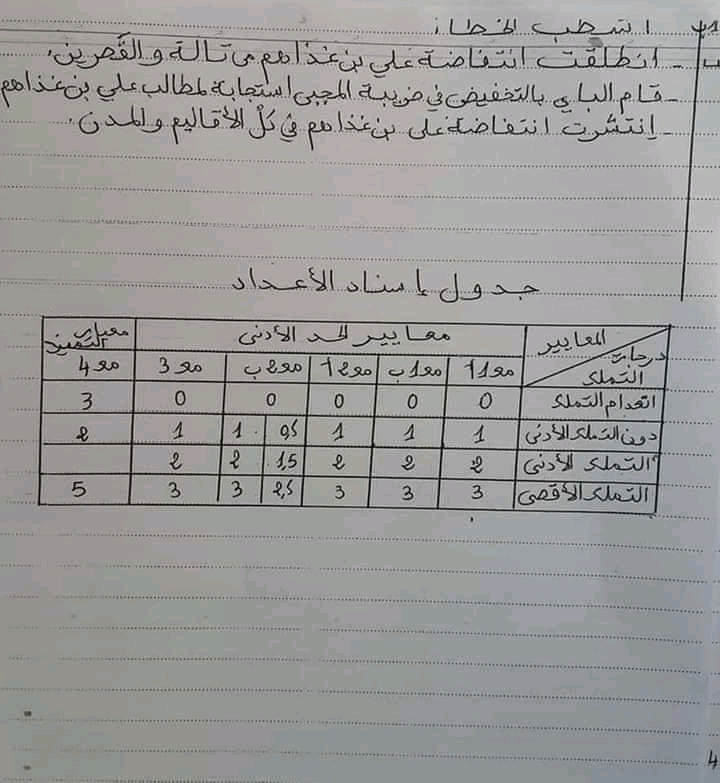 أشطب الخطأ:
ب - انطلقت انتفاضة علي بن غذاهم من تالة والقصرين.
- قام الباي بالتخفيض في ضريبة المجبى استجابة لمطالب علي بن غذاهم
- إنتشرت انتفاضة علي بن غذاهم في كلّ الأقاليم والمدن.
جدول إسناد الأعداد
المعايير درجات التملك معايير الحد الأدنى معيار التميز
مع1أ مع1ب مع2أ مع2ب مع3 مع4
انعدام التملك 0 0 0 0 0 3
دون التملك الأدنى 1 1 1 0,5 1 1 2
التملك الأدنى 2 2 2 1,5 2 2
التملك الأقصى 3 3 3 2,5 3 3 5
4